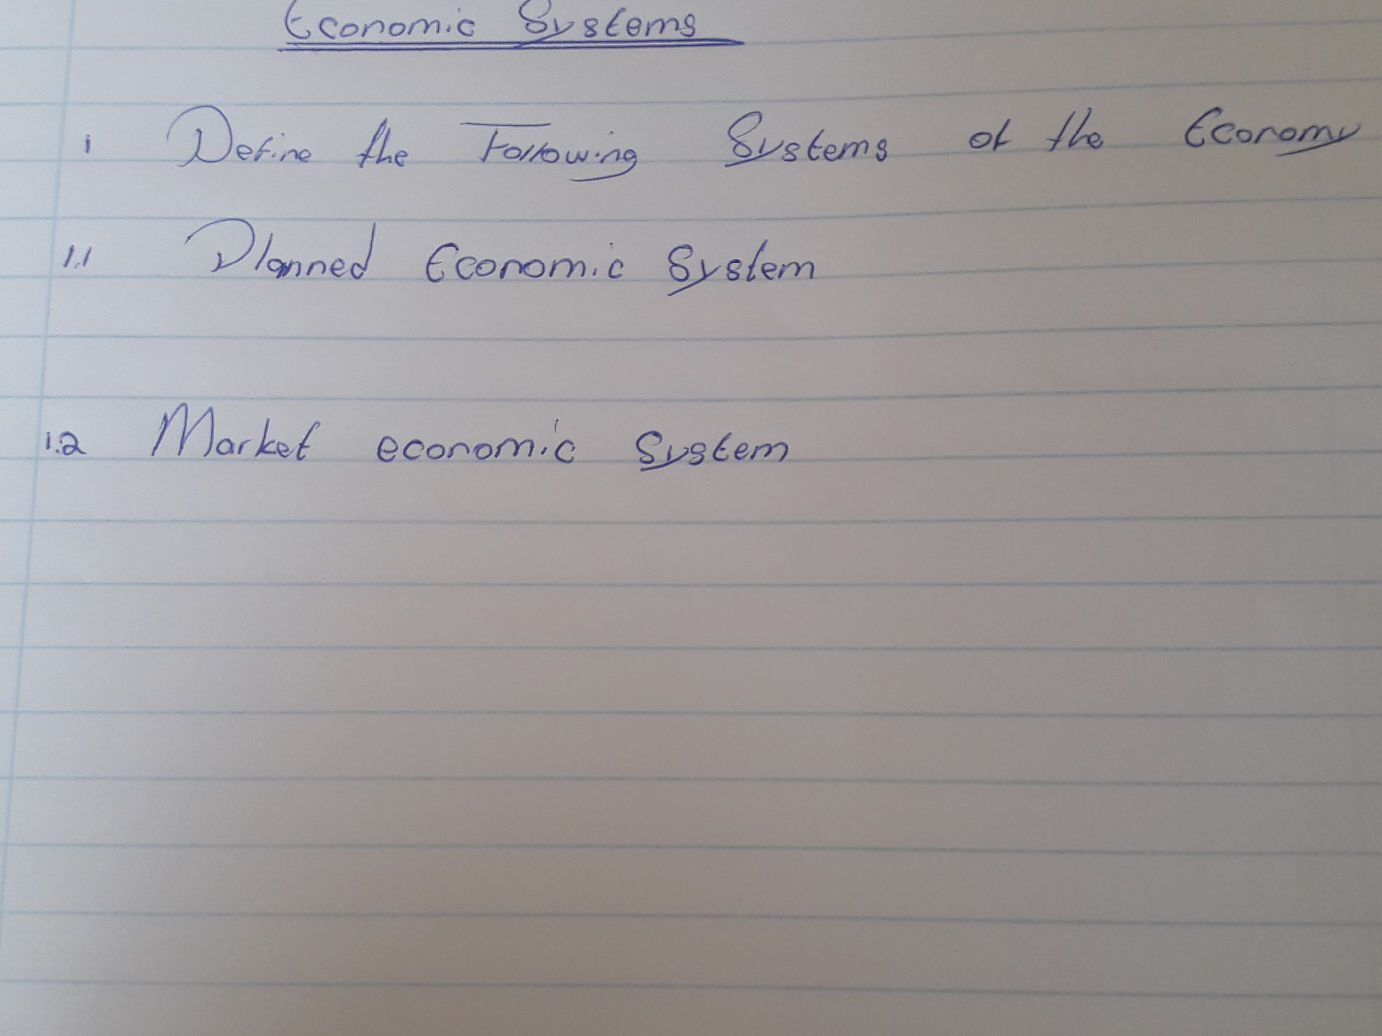 Economic Systems
1 Define the Following Systems of the Economy
1.1 Planned Economic System
1.2 Market economic System